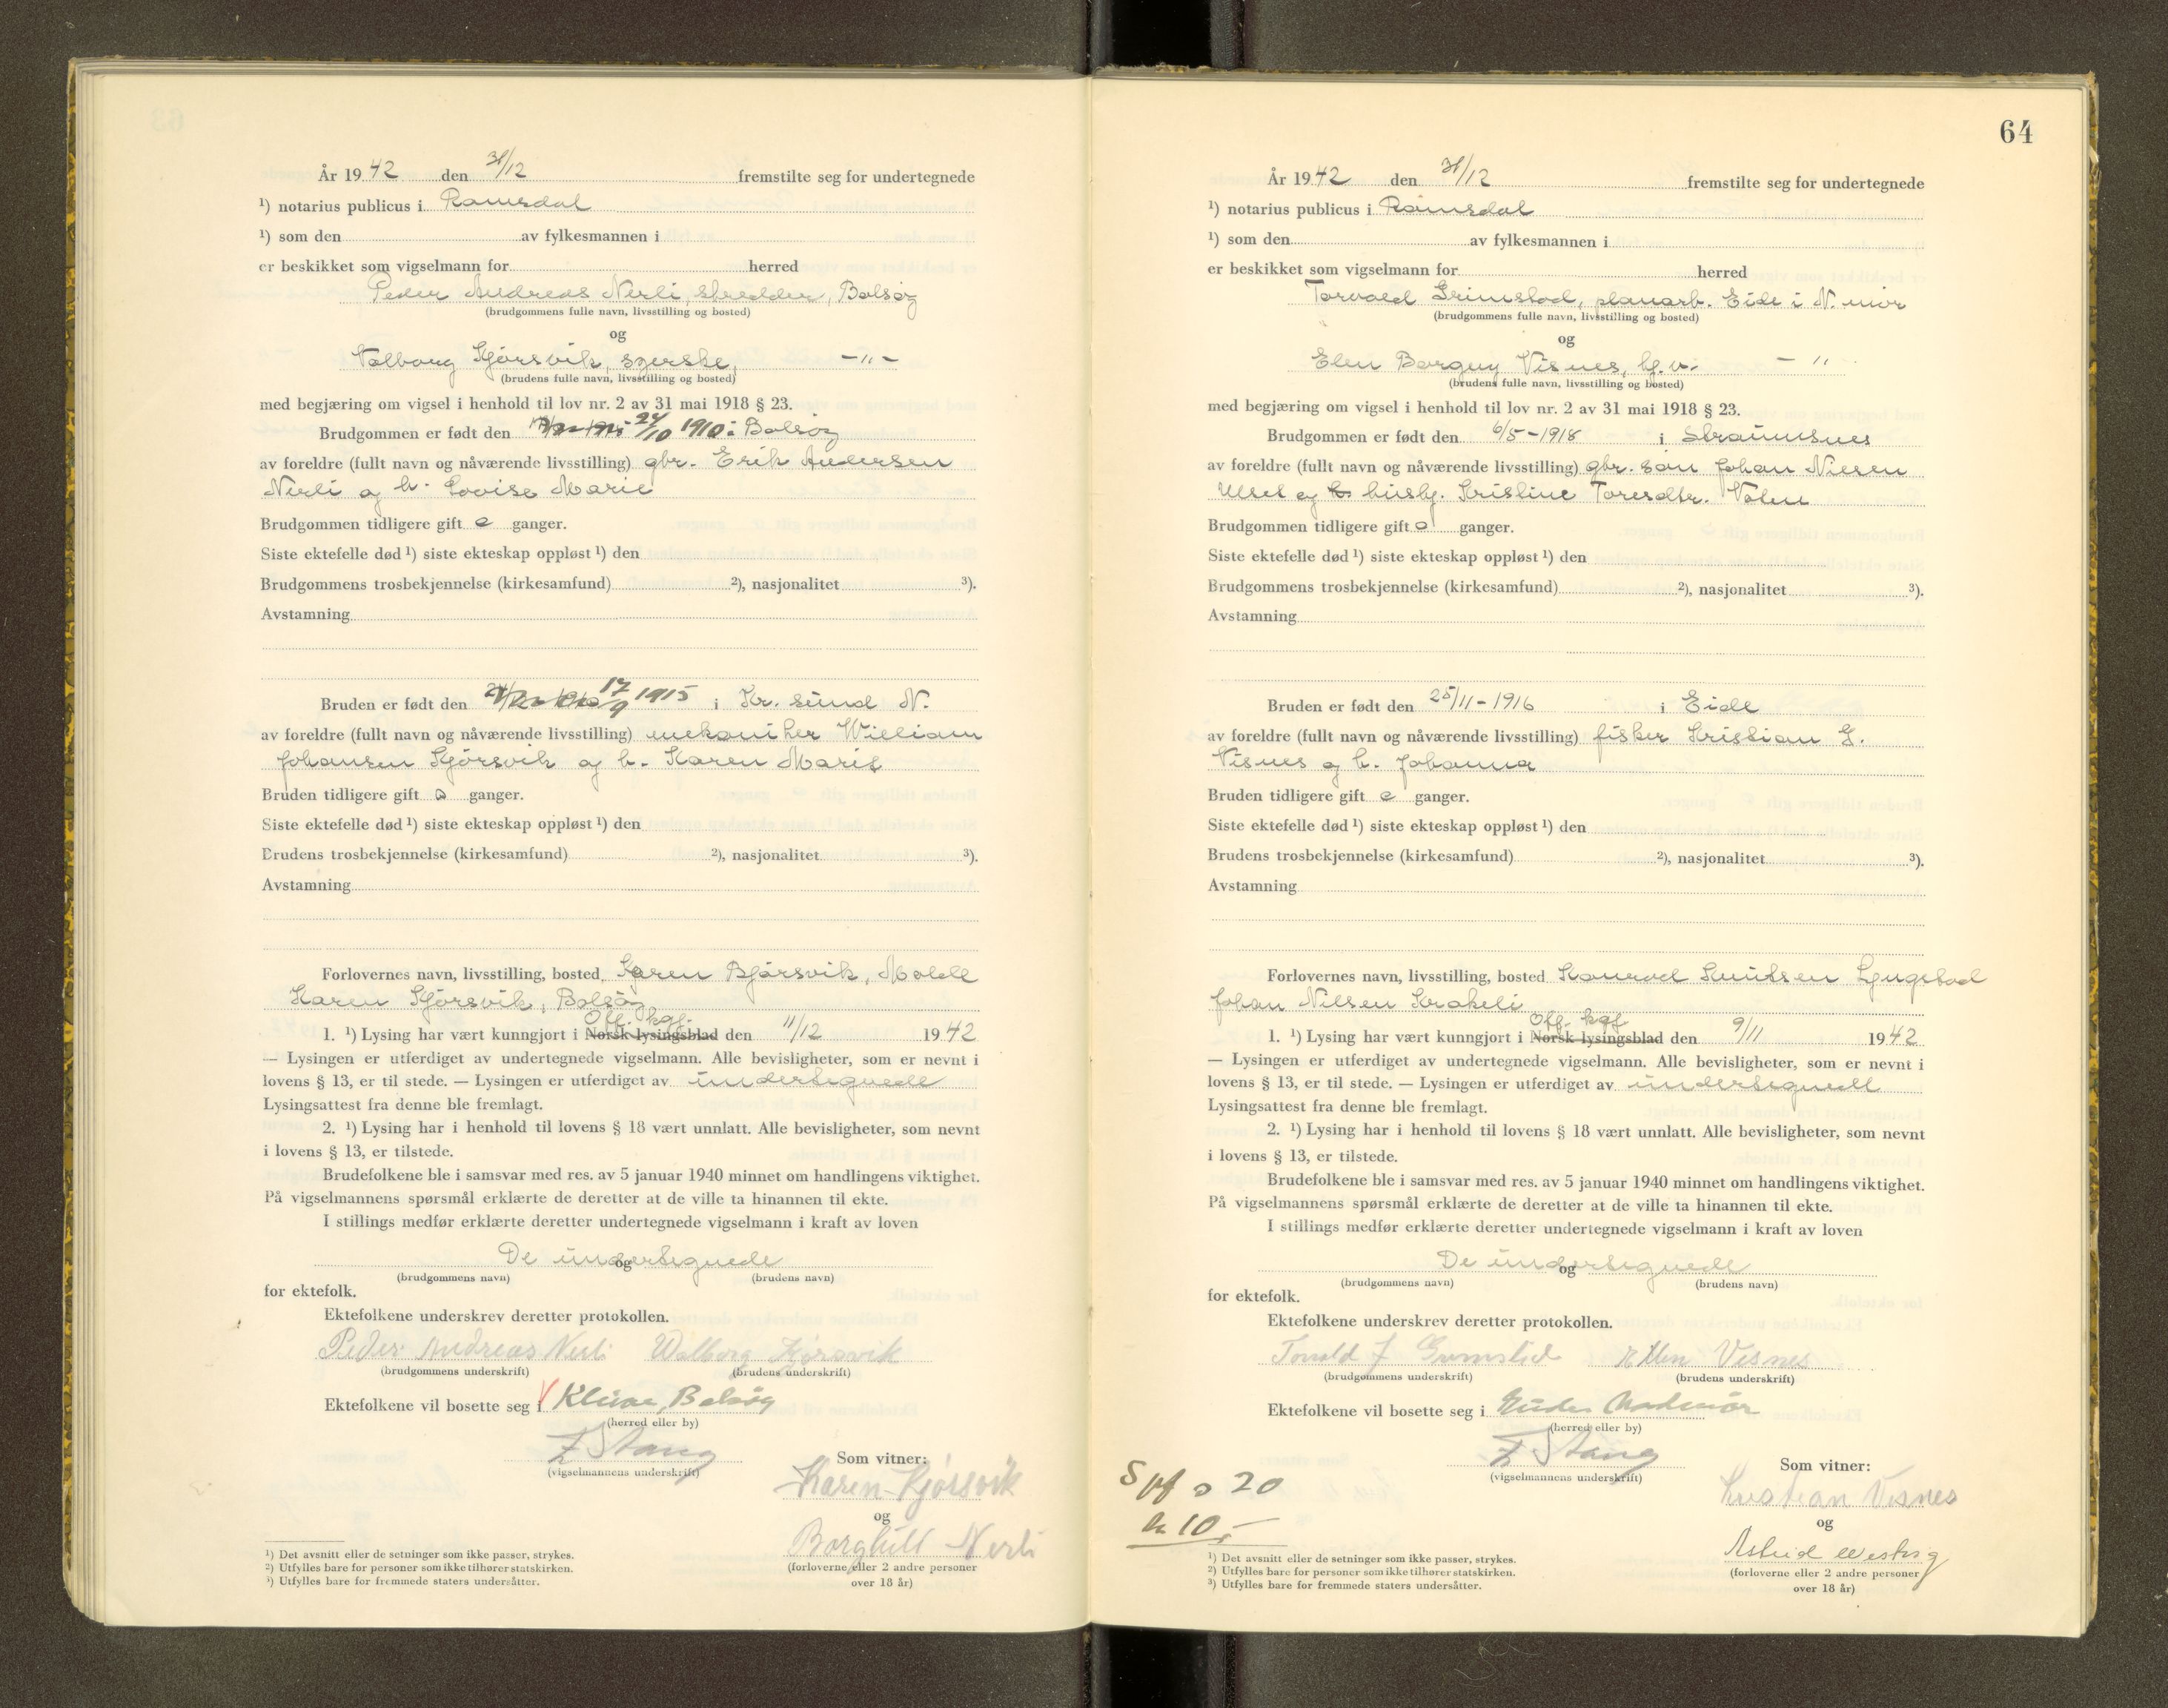 År 19 42 den 31/12 fremstilte seg for undertegnede
¹) notarius publicus i Romsdal
¹) som den av fylkesmannen i
er beskikket som vigselmann for herred
Peder Andreas Nerli, skredder, Bolsøy
(brudgommens fulle navn, livsstilling og bosted)
og
Valborg Kjørsvik, syerske, -"-
(brudens fulle navn, livsstilling og bosted)
med begjæring om vigsel i henhold til lov nr. 2 av 31 mai 1918 § 23.
Brudgommen er født den 24/10 1910 i Bolsøy
av foreldre (fullt navn og nåværende livsstilling) gbr. Erik Andersen
Nerli og h. Lovise Marie
Brudgommen tidligere gift 0 ganger.
Siste ektefelle død ¹) siste ekteskap oppløst ¹) den
Brudgommens trosbekjennelse (kirkesamfund) ²), nasjonalitet ³).
Avstamning
Bruden er født den 17/9 1915 i Kr. sund N.
av foreldre (fullt navn og nåværende livsstilling) mekaniker William
Johansen Kjørsvik og h. Karen Marit
Bruden tidligere gift 0 ganger.
Siste ektefelle død ¹) siste ekteskap oppløst ¹) den
Brudens trosbekjennelse (kirkesamfund) ²), nasjonalitet ³).
Avstamning
Forlovernes navn, livsstilling, bosted Karen Bjørsvik, Molde
Karen Kjørsvik, Bolsøy
Off. kgj.
1. ¹) Lysing har vært kunngjort i Norsk lysingsblad den 11/12 19 42
— Lysingen er utferdiget av undertegnede vigselmann. Alle bevisligheter, som er nevnt i
lovens § 13, er til stede. — Lysingen er utferdiget av undertegnede
Lysingsattest fra denne ble fremlagt.
2. ¹) Lysing har i henhold til lovens § 18 vært unnlatt. Alle bevisligheter, som nevnt
i lovens § 13, er tilstede.
Brudefolkene ble i samsvar med res. av 5 januar 1940 minnet om handlingens viktighet.
På vigselmannens spørsmål erklærte de deretter at de ville ta hinannen til ekte.
I stillings medfør erklærte deretter undertegnede vigselmann i kraft av loven
De undertegnede
og
(brudgommens navn) (brudens navn)
for ektefolk.
Ektefolkene underskrev deretter protokollen.
Peder Andreas Nerli Walborg Kjørsvik
(brudgommens underskrift) (brudens underskrift)
Ektefolkene vil bosette seg i Kleive, Bolsøy
(herred eller by)
Stang
(vigselmannens underskrift)
Som vitner:
Karen Kjørsvik
og
Borghill Nerli
(forloverne eller 2 andre personer
over 18 år)
¹) Det avsnitt eller de setninger som ikke passer, strykes.
²) Utfylles bare for personer som ikke tilhører statskirken.
³) Utfylles bare for fremmede staters undersåtter.
64
År 19 42 den 31/12 fremstilte seg for undertegnede
¹) notarius publicus i Romsdal
¹) som den av fylkesmannen i
er beskikket som vigselmann for herred
Torvald Grimstad, planarb. Eide i N. mør
(brudgommens fulle navn, livsstilling og bosted)
og
Elen Borguy Visnes, - "
(brudens fulle navn, livsstilling og bosted)
med begjæring om vigsel i henhold til lov nr. 2 av 31 mai 1918 § 23.
Brudgommen er født den 6/5-1918 i Straumsnes
av foreldre (fullt navn og nåværende livsstilling) gbr. søn Johan Nilsen
Ulset og husb. Kristine Toresdtr. Valen
Brudgommen tidligere gift 0 ganger.
Siste ektefelle død ¹) siste ekteskap oppløst ¹) den
Brudgommens trosbekjennelse (kirkesamfund) ²), nasjonalitet ³).
Avstamning
Bruden er født den 25/11-1916 i Eide
av foreldre (fullt navn og nåværende livsstilling) fisker Kristian G.
Visnes og h. Johanna
Bruden tidligere gift 0 ganger.
Siste ektefelle død ¹) siste ekteskap oppløst ¹) den
Brudens trosbekjennelse (kirkesamfund) ²), nasjonalitet ³).
Avstamning
Forlovernes navn, livsstilling, bosted Konrad Knutsen Lyngstad
Johan Nilsen Krakeli
Off. kgj
1. ¹) Lysing har vært kunngjort i Norsk lysingsblad den 9/11 19 42
— Lysingen er utferdiget av undertegnede vigselmann. Alle bevisligheter, som er nevnt i
lovens § 13, er til stede. — Lysingen er utferdiget av undertegnede
Lysingsattest fra denne ble fremlagt.
2. ¹) Lysing har i henhold til lovens § 18 vært unnlatt. Alle bevisligheter, som nevnt
i lovens § 13, er tilstede.
Brudefolkene ble i samsvar med res. av 5 januar 1940 minnet om handlingens viktighet.
På vigselmannens spørsmål erklærte de deretter at de ville ta hinannen til ekte.
I stillings medfør erklærte deretter undertegnede vigselmann i kraft av loven
De undertegnede
og
(brudgommens navn) (brudens navn)
for ektefolk.
Ektefolkene underskrev deretter protokollen.
Torvald J Grimstad Ellen Visnes
(brudgommens underskrift) (brudens underskrift)
Ektefolkene vil bosette seg i Nordmør
(herred eller by)
Stang
(vigselmannens underskrift)
Som vitner:
Kristian Visnes
og
Astrid
(forloverne eller 2 andre personer
over 18 år)
20
10,-
¹) Det avsnitt eller de setninger som ikke passer, strykes.
²) Utfylles bare for personer som ikke tilhører statskirken.
³) Utfylles bare for fremmede staters undersåtter.